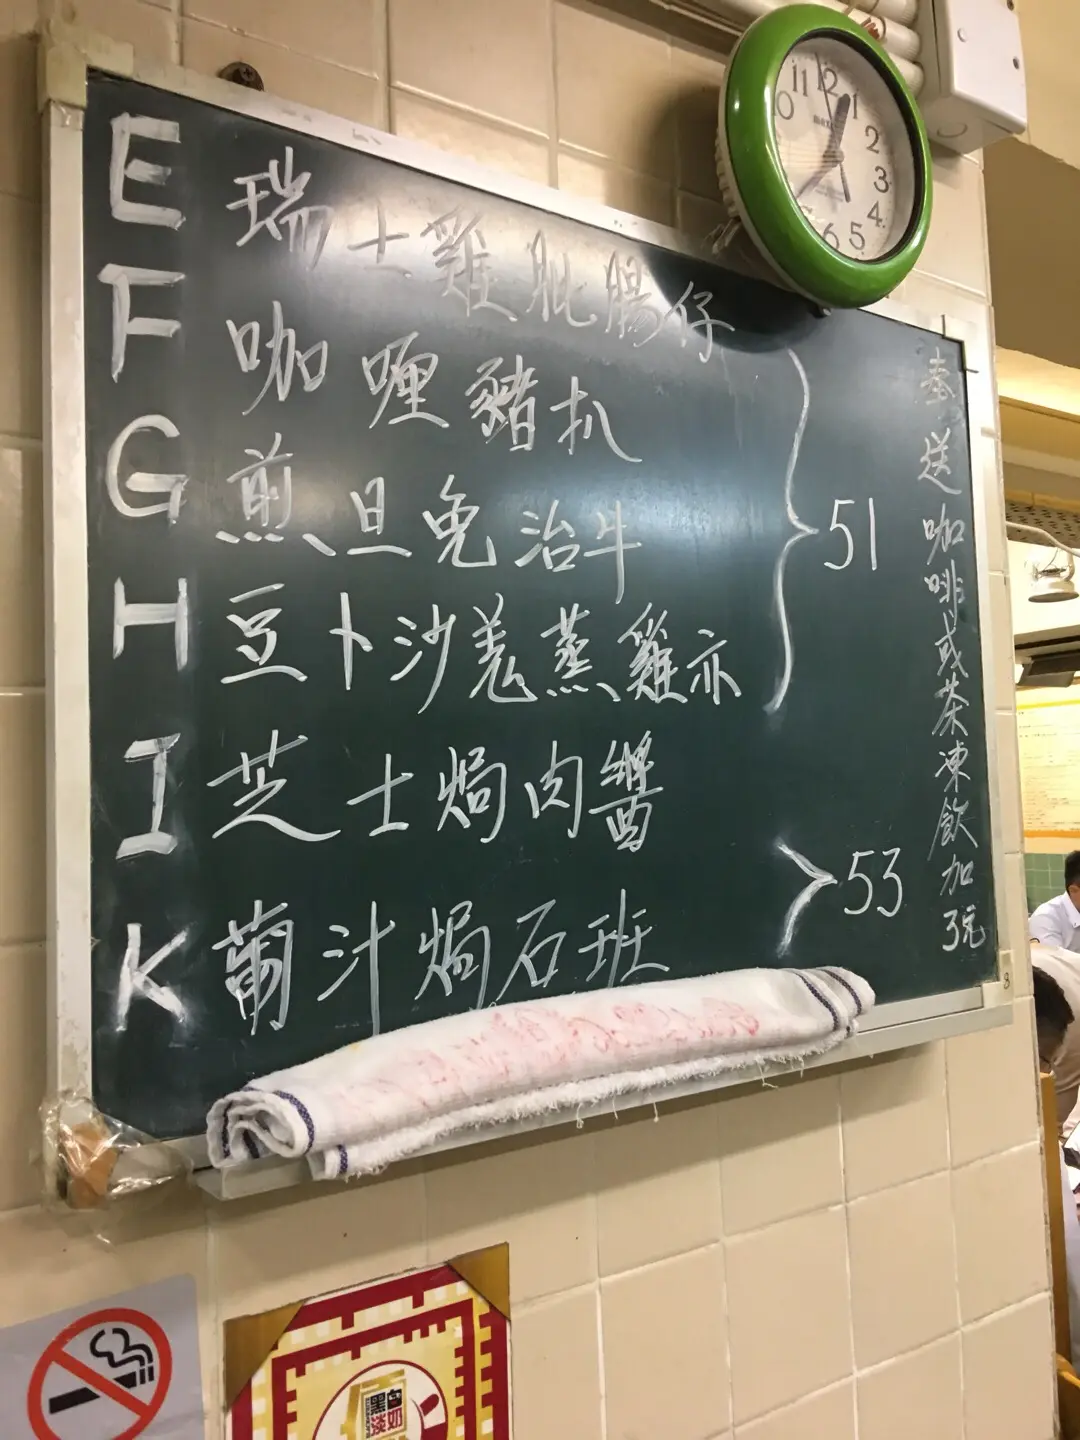 E 瑞士雞肶腸仔
F 咖喱豬扒
G 煎旦免治牛
H 豆卜沙羗蒸雞亦
51
I 芝士焗肉醬
K 葡汁焗石班
53
奉送咖啡或茶凍飲加3元
10 11 12 1 2 3 4 5 6
8
黑白
淡奶